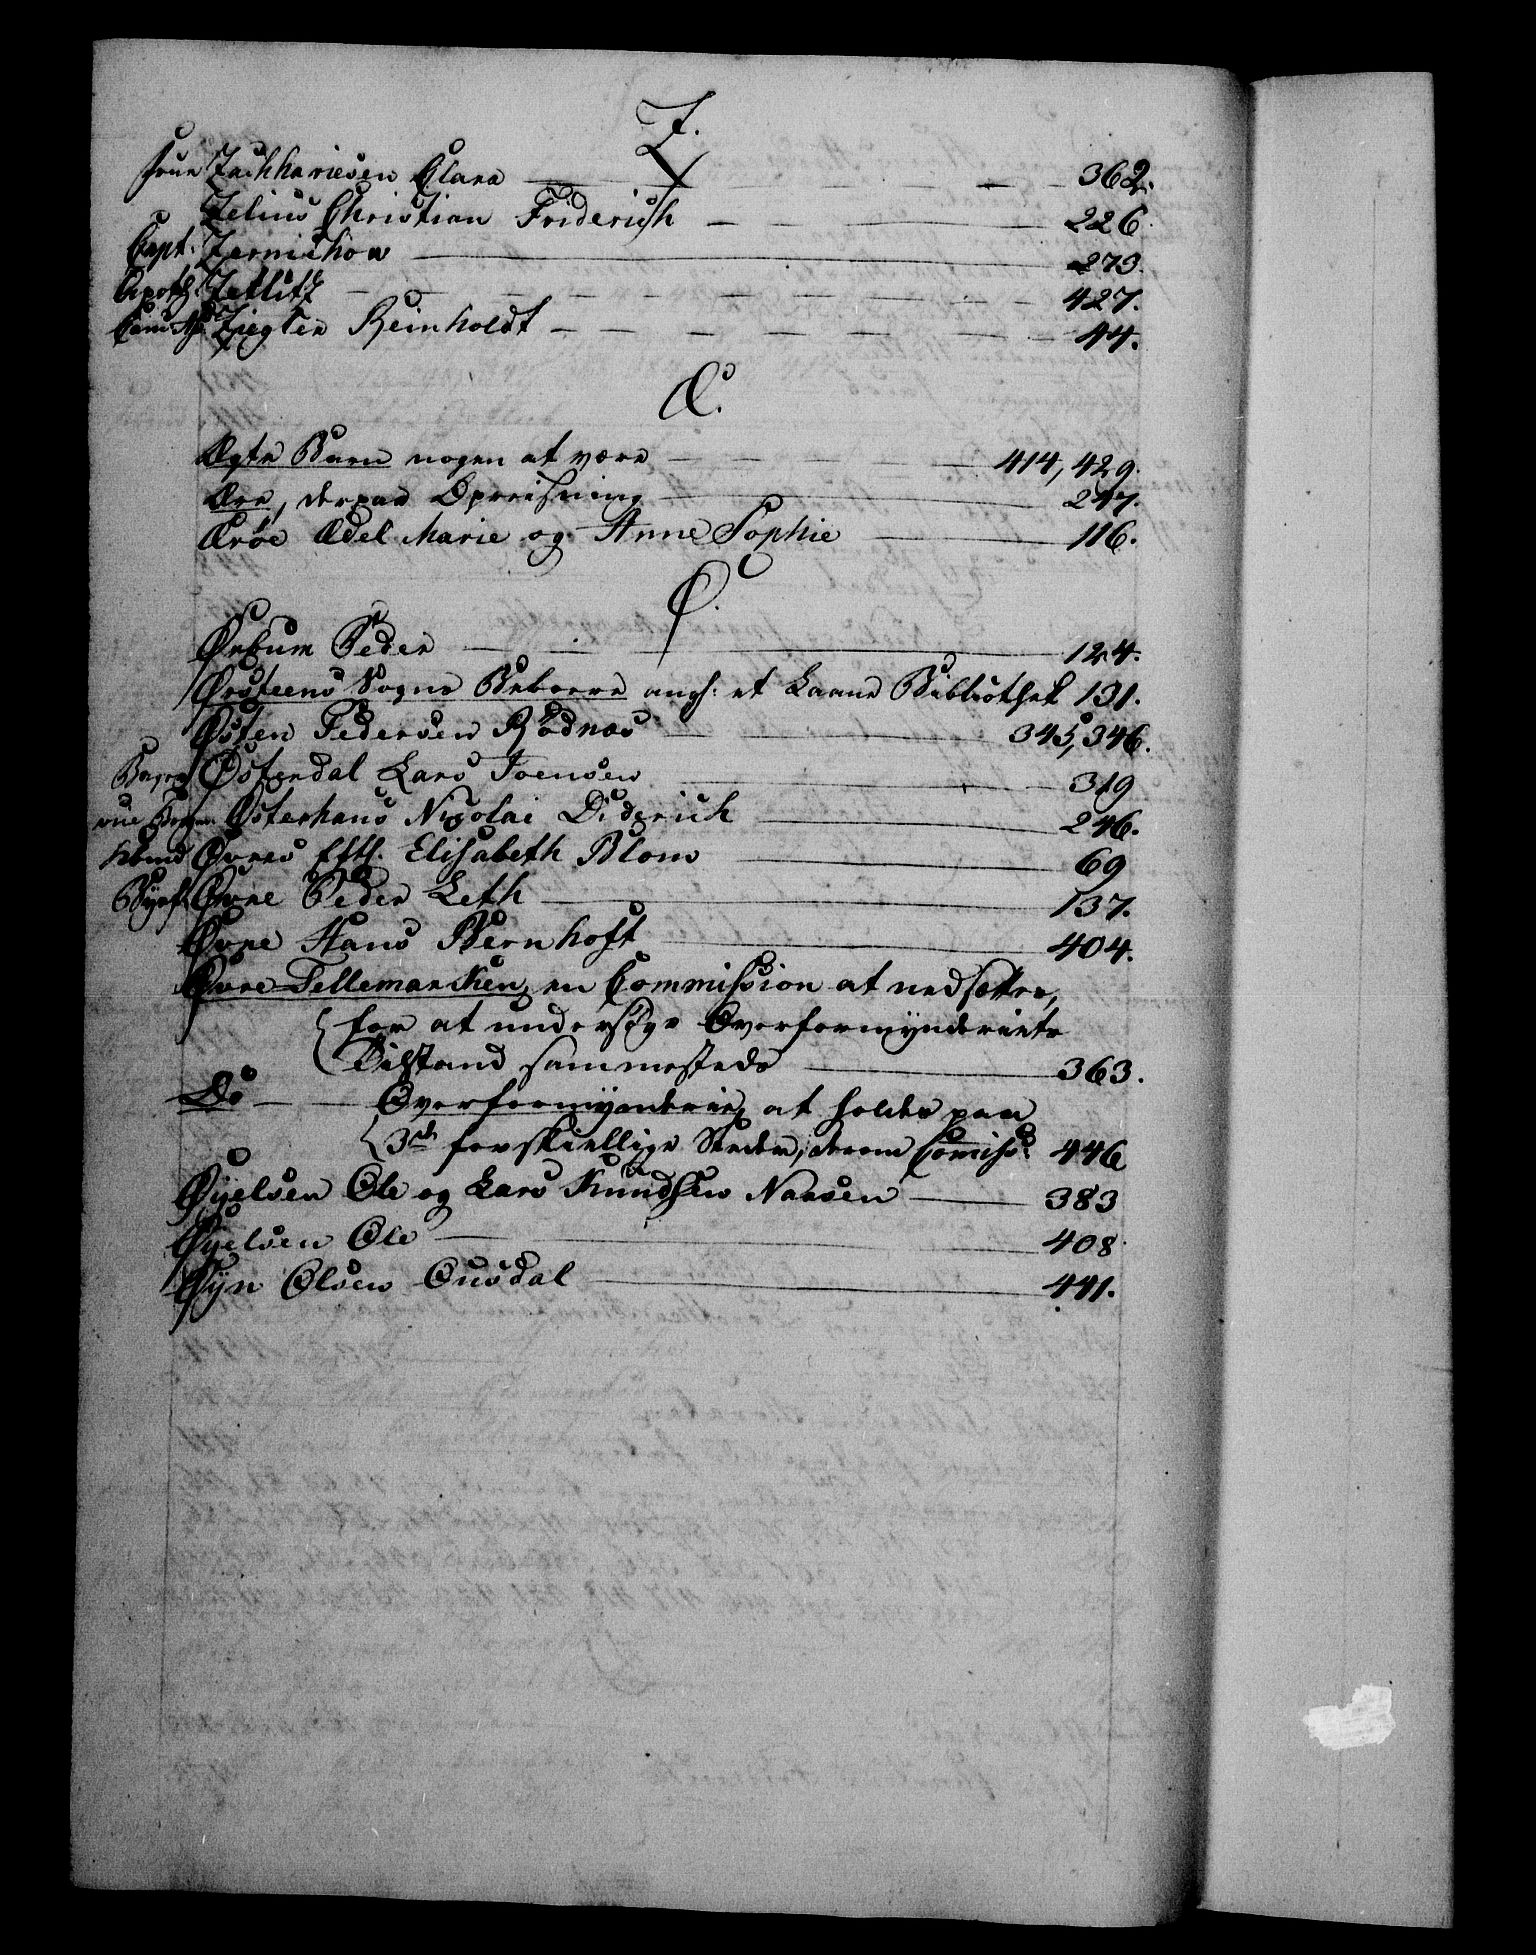 Z.
frue Zachhariesen Clara 362.
Zelius Christian Friderich 226
Capt. Zernichow 273.
Apoth. Zetlitz 427.
Ziegler Reinholdt 44.
Æ.
Ægte Barn nogen at være 414, 429.
Ære, derpaa Opreisning 247.
Ærøe Ædel Marie og Anne Sophie 116.
Ø.
Ørbum Peder 124.
Ørsteens Sogns Beboere angl: et Laane Bibliothek 131.
Østen Pedersen Rødnæs 345, 346.
Østerdal Lars Joensen 319
Østerhaus Nicolai Diderich 246.
Øvres Eftl. Elisabeth Blom 69
Øvre Peder Leth 137.
Øvre Hans Bernhoft 404.
Øvre Tellemarcken, en Commission at nedsættes,
for at undersøge Overformynderiets
Tilstand sammesteds 363.
Do Overformynderie, at holdes paa
3de forskiellige Steder, derom Comiss: 446
Øyelsen Ole og Lars Knudsen Narsen 383
Øyelsen Ole 408
Øyn Olsen Ousdal 441.